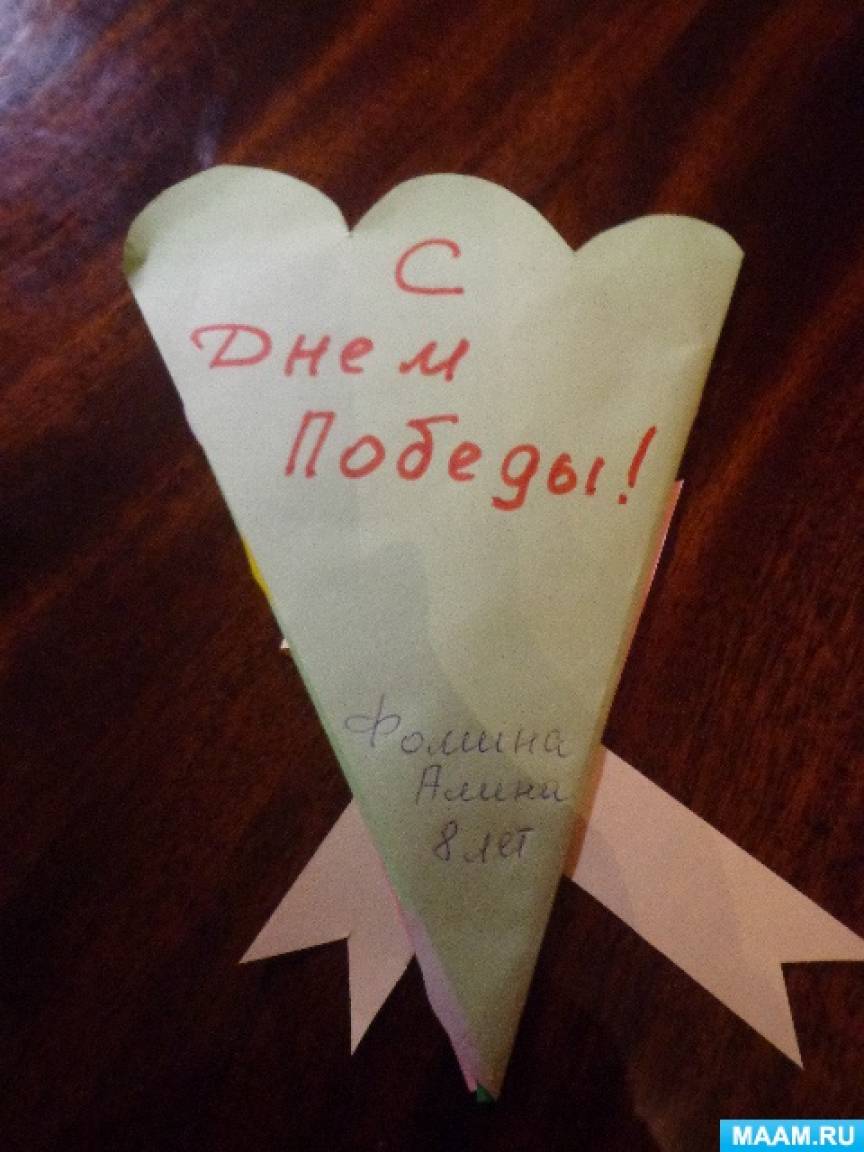 С
Днем
Победы!
Фомина
Алина
8 лет
MAAM.RU